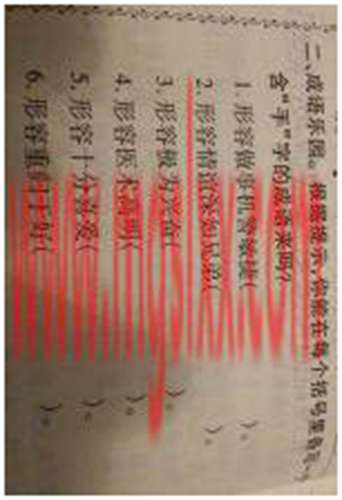 二、成语乐园。根据提示,你能在每个括号里各写一
含“手”字的成语来吗?
1. 形容做事机警敏捷( )。
2. 形容情谊深如兄弟( )。
3. 形容极为兴奋( )。
4. 形容医术高明( )。
5. 形容十分喜爱( )。
6. 形容重( )。